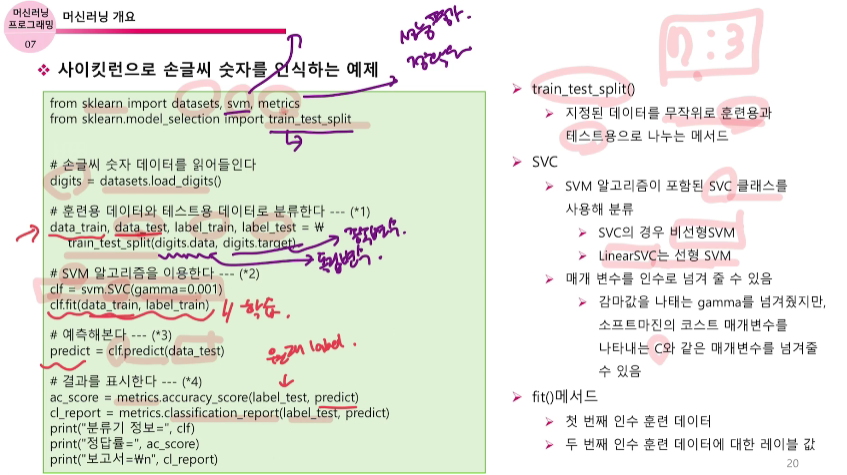 머신러닝
프로그래밍
07
머신러닝 개요
❖ 사이킷런으로 손글씨 숫자를 인식하는 예제
성능평가.
정확도
7:3
from sklearn import datasets, svm, metrics
from sklearn.model_selection import train_test_split
# 손글씨 숫자 데이터를 읽어들인다
digits = datasets.load_digits()
# 훈련용 데이터와 테스트용 데이터로 분류한다 --- (*1)
data_train, data_test, label_train, label_test = ₩
train_test_split(digits.data, digits.target)
종속변수.
독립변수.
# SVM 알고리즘을 이용한다 --- (*2)
clf = svm.SVC(gamma=0.001)
clf.fit(data_train, label_train)
학습.
# 예측해본다 --- (*3)
predict = clf.predict(data_test)
원래 label.
# 결과를 표시한다 --- (*4)
ac_score = metrics.accuracy_score(label_test, predict)
cl_report = metrics.classification_report(label_test, predict)
print("분류기 정보=", clf)
print("정답률=", ac_score)
print("보고서=₩n", cl_report)
➢ train_test_split()
➢ 지정된 데이터를 무작위로 훈련용과
테스트용으로 나누는 메서드
➢ SVC
➢ SVM 알고리즘이 포함된 SVC 클래스를
사용해 분류
➢ SVC의 경우 비선형SVM
➢ LinearSVC는 선형 SVM
➢ 매개 변수를 인수로 넘겨 줄 수 있음
➢ 감마값을 나태는 gamma를 넘겨줬지만,
소프트마진의 코스트 매개변수를
나타내는 C와 같은 매개변수를 넘겨줄
수 있음
➢ fit()메서드
➢ 첫 번째 인수 훈련 데이터
➢ 두 번째 인수 훈련 데이터에 대한 레이블 값
20